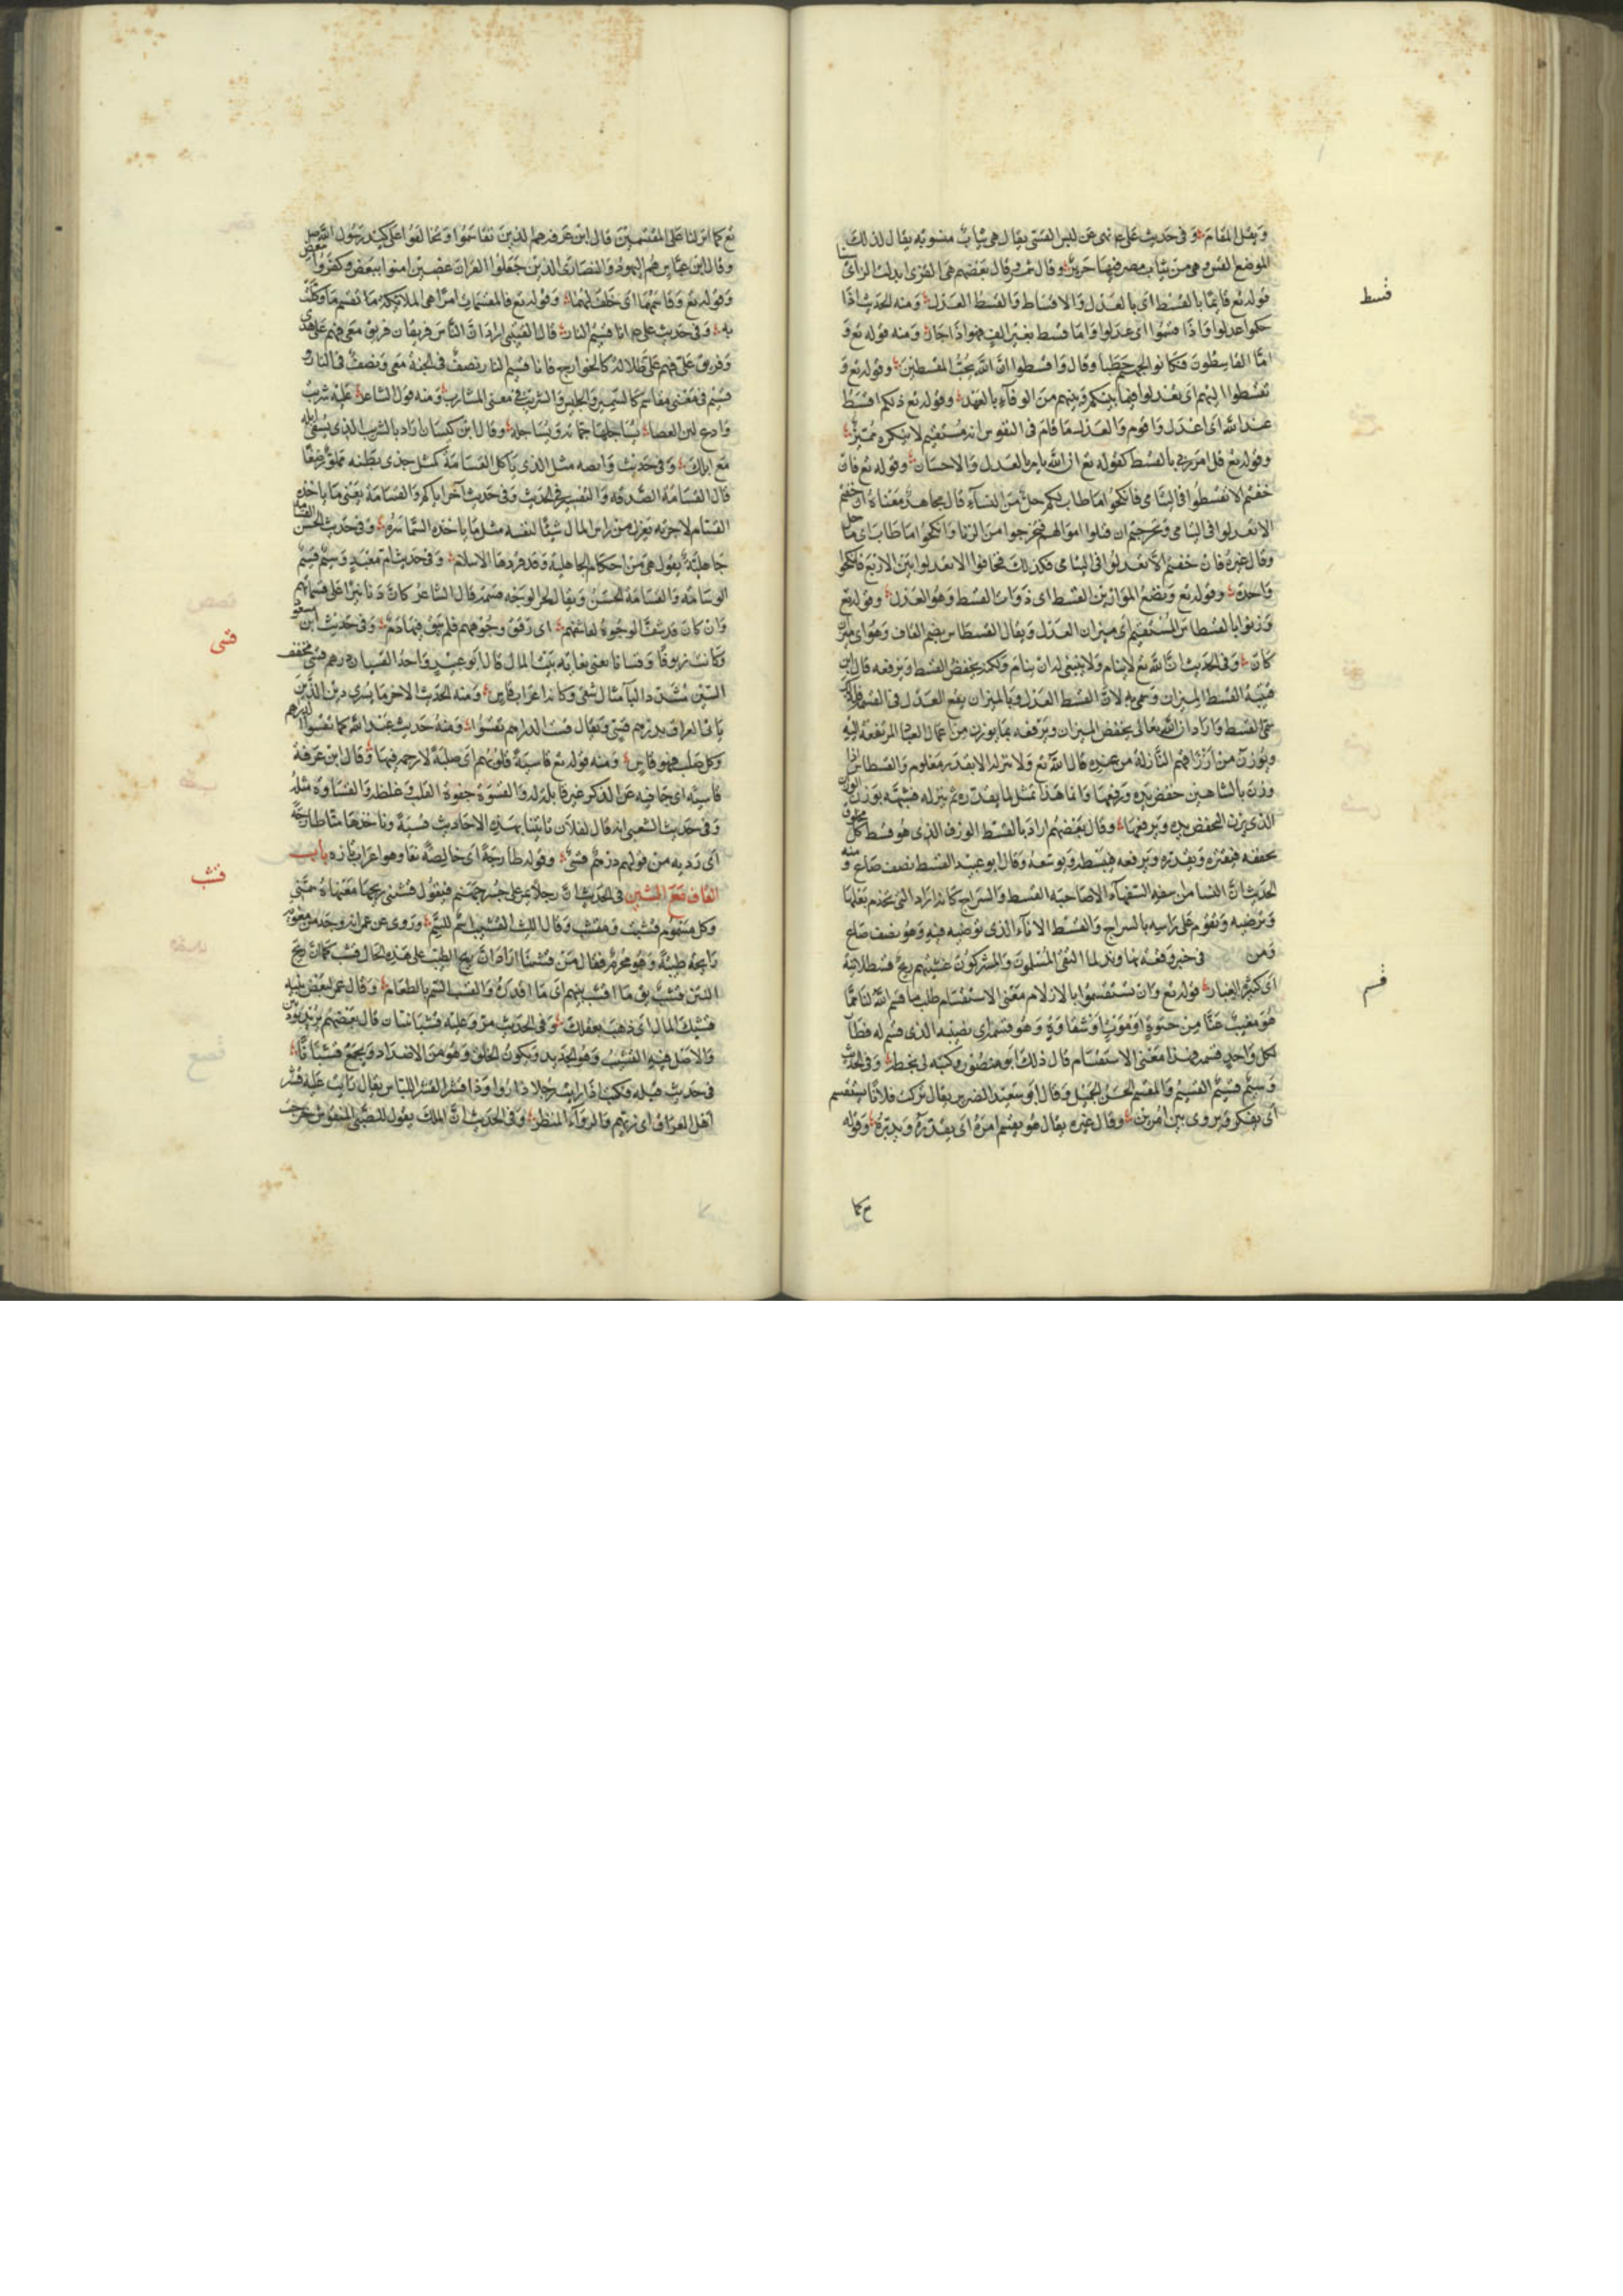 وَيقتل المقام وَفى حَديث على ع نهى عن لبس القسّى يقال هى ثياب منسوبة يقال لذلك
الموضع القس وهى من ثياب مصر فيها حرير وقال شمر قال بعضهم هى القزى ابدلت الزاى سينا
قوله تع قائما بالقسط اى بالعدل والاقساط والقسط العدل ومنه الحديث اذا
حكموا عدلوا واذا قسموا اى عدلوا واما قسط بغير الف فهو اذا جار ومنه قوله تع و
امّا القاسطون فكانوا لجهنم حطبا وقال واقسطوا انّ الله يحبّ المقسطين وقوله تع و
تقسطوا اليهم اى تعدلوا فيما بينكم وبينهم من الوفاء بالعهد وقوله تع ذلكم اقسط
عند الله اى اعدل واقوم والعدل ما قام فى النفوس انه مستقيم لا ينكره مميّز
وقوله تع قل امر ربى بالقسط كقوله تع ان الله يامر بالعدل والاحسان وقوله تع فان
خفتم الا تقسطوا فى اليتامى فانكحوا ما طاب لكم حلّ من النساء قال مجاهد معناه ان خفتم
الا تعدلوا فى اليتامى وتحرجتم ان تلوا اموالهم فتحرجوا من الزنا وانكحوا ما طاب اى ما حل
وقال غيره فان خفتم الّا تعدلوا فى اليتامى فكذلك فخافوا الا تعدلوا بين الاربع فانكحوا
واحدة وقوله تع ونضع الموازين القسط اى ذوات القسط وهو العدل وقوله تع
وزنوا بالقسطاس المستقيم اى ميزان العدل ويقال القسطاس بضم القاف وهو اى ميزان
كان وفى الحديث انّ الله تع لا ينام ولا ينبغى له ان ينام ولكنه يخفض القسط ويرفعه قال ابن
قتيبة القسط الميزان وسمى به لانّ القسط العدل وبالميزان يقع العدل فى القسمة فلذلك
سمى القسط واراد ان الله تعالى يخفض الميزان ويرفعه بما يوزن من اعمال العباد المرتفعة اليه
ويوزن من ارزاقهم النازلة من عنده قال الله تع ولا ننزله الا بقدر معلوم والقسطاس اذا
وزن بالشاهين خفض يده ورفعها وانما هذا تمثل لما يقدره ثم ينزله فشبّهه بوزن الوزان
الذى يزن فيخفض يده ويرفعها وقال بعضهم اراد بالقسط الوزن الذى هو قسط كل مخلوق
يخفضه فيقتره ويقدره ويرفعه فيبسطه ويوسعه وقال ابو عبيد القسط نصف صاع ومنه
الحديث انّ النساء من سفه السفهاء الا صاحبة القسط والسراج كانه اراد التى تخدم بعلها
وترضيه وتقوم على راسه بالسراج والقسط الاناء الذى توضيه فيه وهو نصف صاع
ومن فى خبر وقعة نهاوند لما التقى المسلمون والمشركون غشيتهم ريح قسطلانية
اى كثير الغبار قوله تع وان تستقسموا بالازلام معنى الاستقسام طلب ما قسم الله لنا ممّا
هو مغيب عنّا من حيوة او موت او شقاوة وهو قسمه اى نصيبه الذى قسم له فطا
لكل واحد قسمه فهذا معنى الاستقسام قال ذلك ابو منصور وكتبه لى بخطه وفى الحديث
وسيم قسيم القسيم والمقسم الحسن الجميل وقال ابو سعيد الضرير يقال تركت فلانا يستقسم
اى يفكر ويروى بين امرين وقال غيره يقال هو يقسم امره اى يقدره ويدبّره وقوله
كما
قسط
قسم
تع كما انزلنا على المقتسمين قال ابن عرفه هم الذين تقاسموا وتحالفوا على كيد رسول الله صلى
وقال ابن عباس هم اليهود والنصارى الذين جعلوا القرآن عضين امنوا ببعض وكفروا ببعض
وقوله تع وقاسمهما اى حلف لهما وقوله تع فالمقسمات امرا هى الملائكة ما تقسم ما وكلت
به وفى حديث على ع انا قسيم النار قال القتيبى اراد انّ الناس فريقان فريق معى فهم على هدى
وفريق علىّ فهم على ضلالة كالخوارج فانا قسيم النار نصف فى الجنة معى ونصف فى النار
قسيم فى معنى مقاسم كالسمير والجليس والشريب فى معنى المشارب ومنه قول الشاعر عليه شريب
وادع لين العصا يساجلها جمّاته وتساجله وقال ابن كيسان اراد بالشريب الذى يسقى ابله
مع ابلك وفى حديث وابصه مثل الذى ياكل القسامة كمثل جدى بطنه مملو رضفا
قال القسامة الصدقة والتفسير فى الحديث وفى حديث آخر اياكم والقسامة يعنى ما ياخذه
القسّام لاجرته يعزل من راس المال شيئا لنفسه مثل ما ياخذه السماسرة وفى حديث الحسن القسامة
جاهلية يقول هى من احكام الجاهلية وقد قررها الاسلام وفى حديث ام معبد وسيم قسيم
الوسامة والقسامة الحسن ويقال لحر الوجه قسمة قال الشاعر كانّ دنانيرا على قسماتهم
وان كان قد شفّ الوجوه لقاء اى رقق وجوههم فلم يبق فيها دم وفى حديث ابن مسعود
وكانت زيوفا وقسيانا يعنى نفاية بيت المال قال ابو عبيد واحد القسيان درهم قسى مخفف
السين مشدد الياء مثال شقى وكانه اعراب قاس ومنه الحديث الاخر ما يسرى دين الذين
ياتى العراف بدرهم قسى ويقال قست الدراهم تقسوا ومنه حديث عبد الله كما تقسوا الدراهم
وكل صلب فهو قاس ومنه قوله تع قاسية قلوبهم اى صلبة لا رحمة فيها وقال ابن عرفة
قاسية اى جافية عن الذكر غير قابلة له والقسوة جفوة القلب وغلظه والقساوة مثله
وفى حديث الشعبى انه قال لفلان تاتينا بهذه الاحاديث قسيّة وتاخذها منّا طازجة
اى ردية من قولهم درهم قسىّ وقوله طازجة اى خالصة نقا وهو اعراب تازه باب
القاف مع الشين فى الحديث انّ رجلا يمر على جسر جهنم فيقول قشبنى ريحها معناه سمّنى
وكل مسموم قشيب ومقشب وقال الليث القشب اسم للسمّ وروى عن عمر انه وجد من معوية
رايحة طيبة وهو محرم فقال من قشبنا اراد انّ ريح الطيب على هذه الحال قشب كما انّ ريح
النتن قشب يق ما اقشب بيتهم اى ما اقذره والقشب السم بالطعام وقال عمر لبعض بنيه
قشبك المال اى ذهب بعقلك وفى الحديث مرّ وعليه قشبانيتان قال بعضهم بردتان
والاصل فيه القشيب وهو الجديد ويكون الخلق وهو من الاضداد ويجمع قشبا
فى حديث قيله فكنت اذا رايت رجلا ذا رواء وذا قشر القشر اللباس يقال رايت عليه قشر
اهل العراق اى زيهم والرواء المنظر وفى الحديث انّ الملك يقول للصبى المنفوس خرجت
قسى
قشب